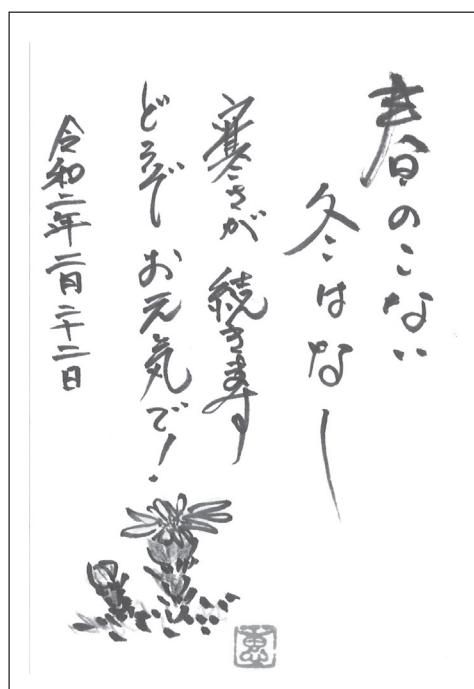 春のこない
冬はなし
寒さが 続きます
どうぞ お元気で!
令和二年二月二十二日
恵